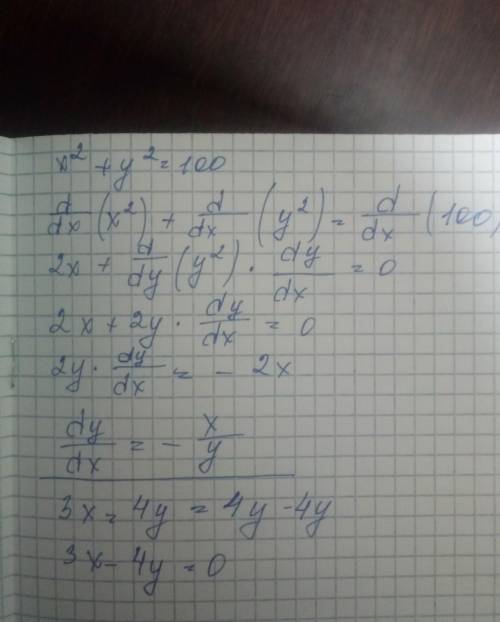 x² + y² = 100
d/dx (x²) + d/dx (y²) = d/dx (100)
2x + d/dy (y²) · dy/dx = 0
2x + 2y · dy/dx = 0
2y · dy/dx = - 2x
dy/dx = - x/y
3x = 4y = 4y - 4y
3x - 4y = 0